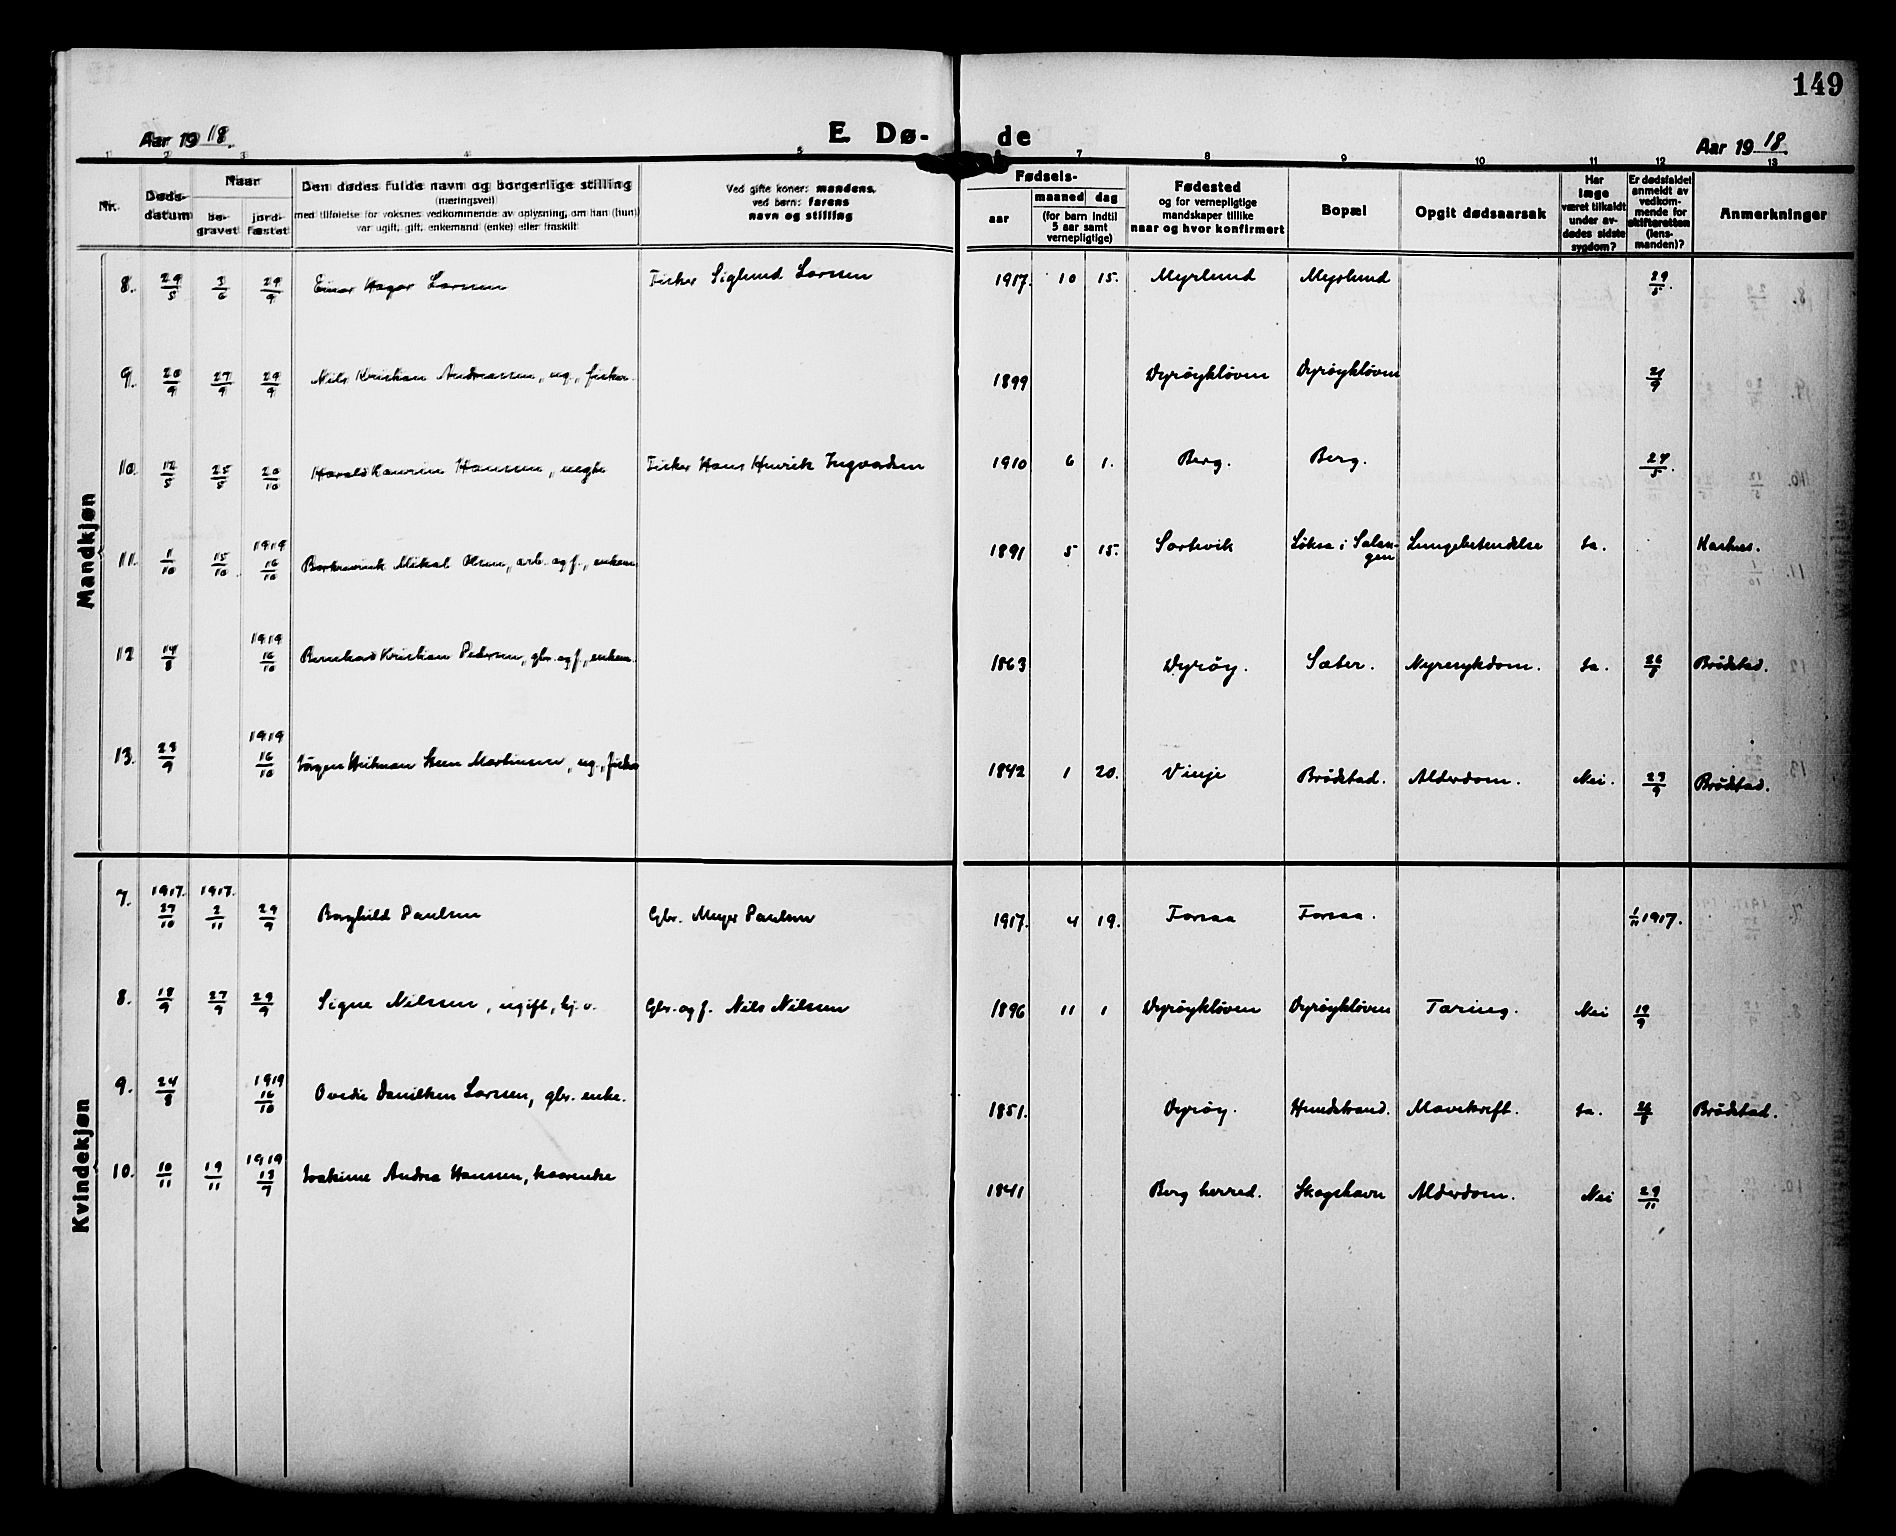 149
Aar 1918.
E. Dø-
de
Aar 1918.
1 2 3 4 5 7 8 9 10 11 12 13
Nr.
Døds-
datum
Naar
be-
gravet
jord-
fæstet
Den dødes fulde navn og borgerlige stilling
(næringsvei)
med tilføielse for voksnes vedkommende av oplysning, om han (hun)
var ugift, gift, enkemand (enke) eller fraskilt
Ved gifte koner: mandens,
ved børn: farens
navn og stilling
Fødsels-
aar
maaned dag
(for barn indtil
5 aar samt
vernepligtige)
Fødested
og for vernepligtige
mandskaper tillike
naar og hvor konfirmert
Bopæl
Opgit dødsaarsak
Har
læge
været tilkaldt
under av-
dødes sidste
sygdom?
Er dødsfaldet
anmeldt av
vedkom-
mende for
skifteretten
(lens-
manden)?
Anmerkninger
Mandkjøn
8. 29/5 3/6 29/9 Einar Hagar Larsen Fisker Siglund Larsen 1917. 10 15. Myrlund Myrlund 29/5.
9. 20/9 27/9 29/9 Nils Kristian Andreassen, ug., fisker. 1899 Dyrøykløven Dyrøykløven 21/9
10. 12/5 25/5 20/10 Harald Hansen, uegte Fisker Hans Henrik Ingvaldsen 1910 6 1. Berg. Berg. 27/5.
11. 1/10 15/10 1919 16/10 Mikal Olsen, arb. og f., enkem. 1891 5 15. Sørtevik Løksa i Salan-
gen Lungebetendelse Ja.
12 14/8 1919 16/10 Bernhard Kristian Pedersen, gbr. og f., enkem. 1863 Dyrøy. Sæter. Nyresykdom. Ja. 26/8 Brødstad.
13. 23/9 1919 16/10 Jørgen Steen Martinsen, ug., fisker 1842 1 20. Vinje Brødstad. Alderdom. Nei. 23/9 Brødstad.
Kvindekjøn
7. 1917. 27/10 1917. 2/11 29/9 Borghild Paulsen Gbr. Meyer Paulsen 1917. 4 19. Forsaa Forsaa. 1/11 1917.
8. 18/9 27/9 29/9 Signe Nilssen, ugift, hj. v. Gbr. og f. Nils Nilssen 1896 11 1 Dyrøykløven Dyrøykløven Tæring. Nei 19/9
9. 24/8 1919 16/10 Ovedie Danilsen Larsen, gbr. enke. 1851. Dyrøy. Hundstrand. Mavekræft. Ja. 26/8 Brødstad.
10. 10/11 19/11 1919 13/7 Joakime Andrea Hanssen, kaarenke 1841 Berg herred. Skogshavn Alderdom. Nei 29/11